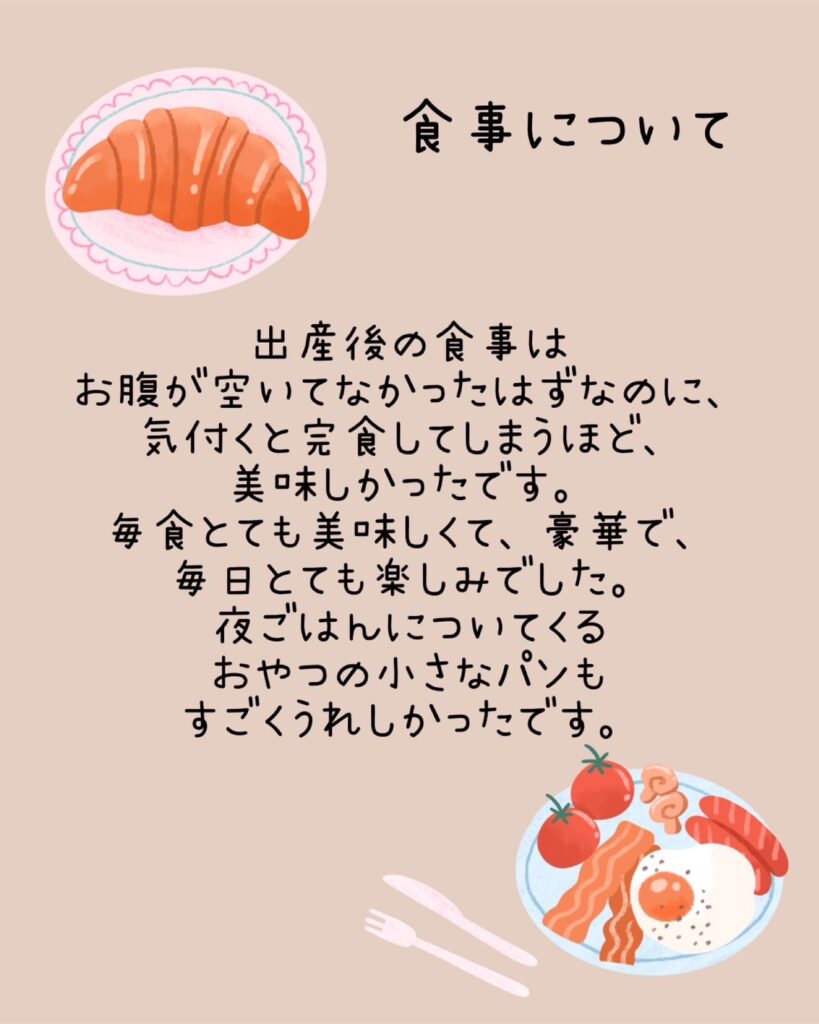 食事について
出産後の食事は
お腹が空いてなかったはずなのに、
気付くと完食してしまうほど、
美味しかったです。
毎食とても美味しくて、豪華で、
毎日とても楽しみでした。
夜ごはんについてくる
おやつの小さなパンも
すごくうれしかったです。